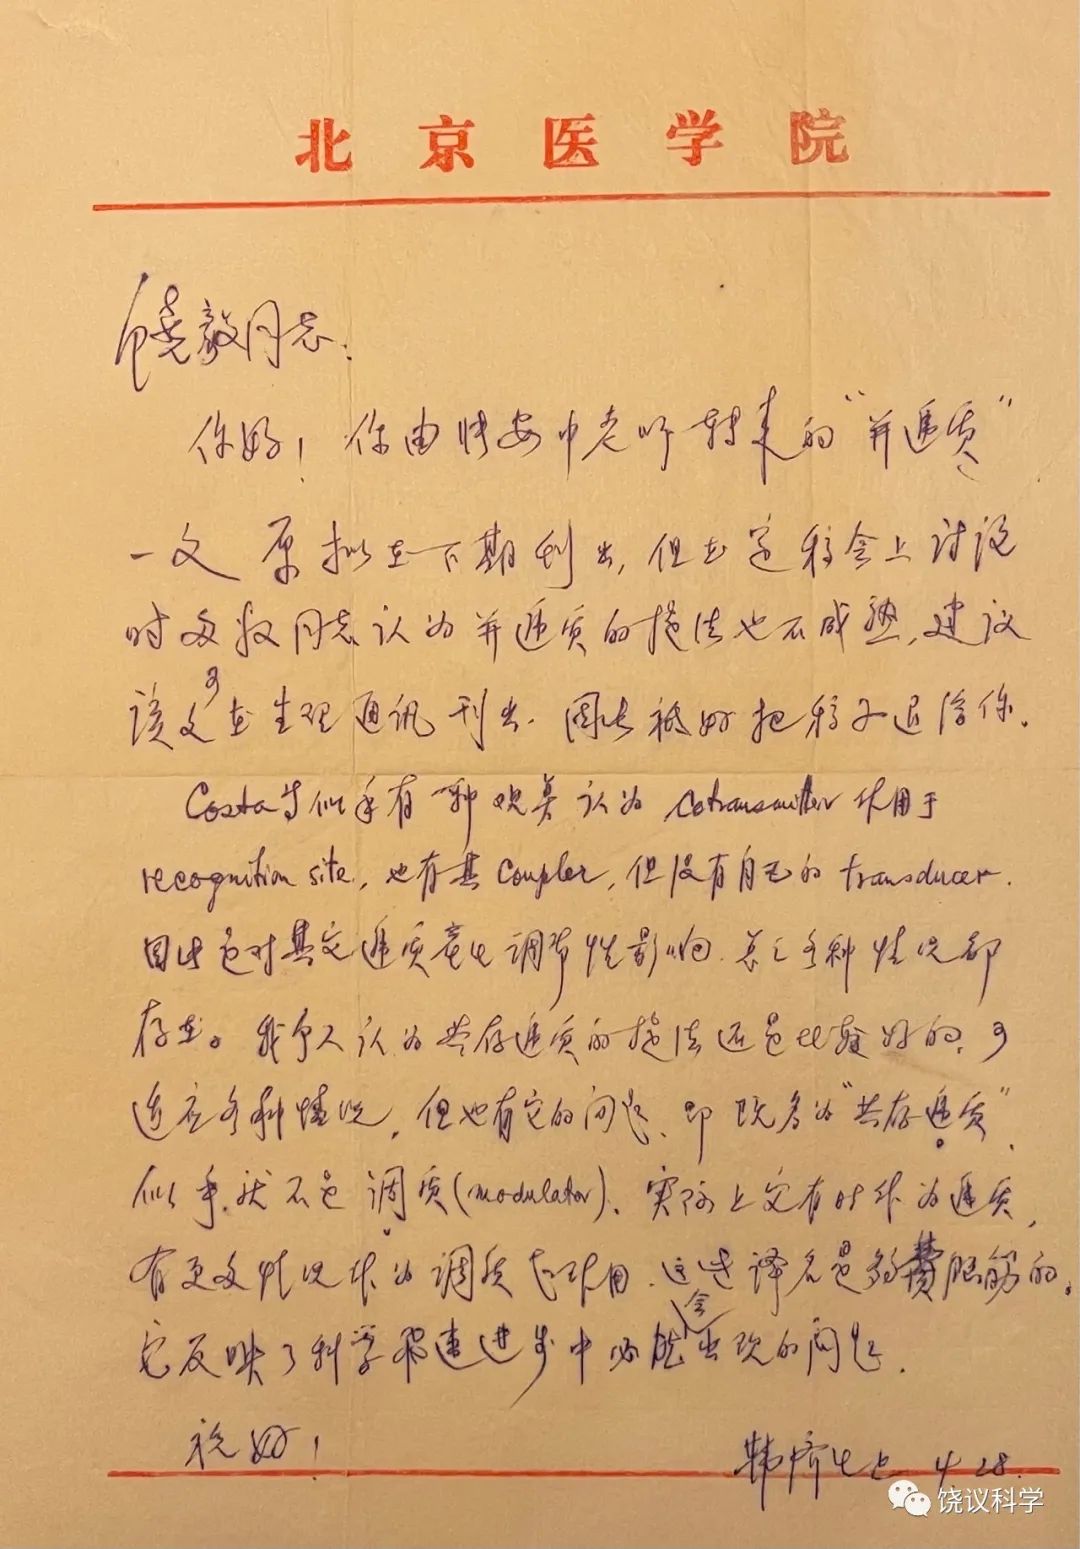 北京医学院
饶毅同志:
你好！你由张安中老师转来的“并递质”
一文 原拟在下期刊出，但在定稿会上讨论
时多数同志认为并递质的提法也不成熟，建议
该文可在生理通讯刊出. 因此只好把稿子退给你。
Costa等似乎有一种观点认为 cotransmitter 作用于
recognition site，也有其 coupler，但没有自己的 transducer.
因此它对其它递质产生调节性影响. 总之各种情况都
存在。我个人认为共存递质的提法还是比较好的，可
适应各种情况，但也有它的问题，即既名为“共存递质”，
似乎就不是调质(modulator)、实际上它有时作为递质，
有更多情况作为调质起作用. 这些译名是够费脑筋的。
它反映了科学飞速进步中必然会出现的问题.
祝好！
韩济生上 4.28.
饶议科学